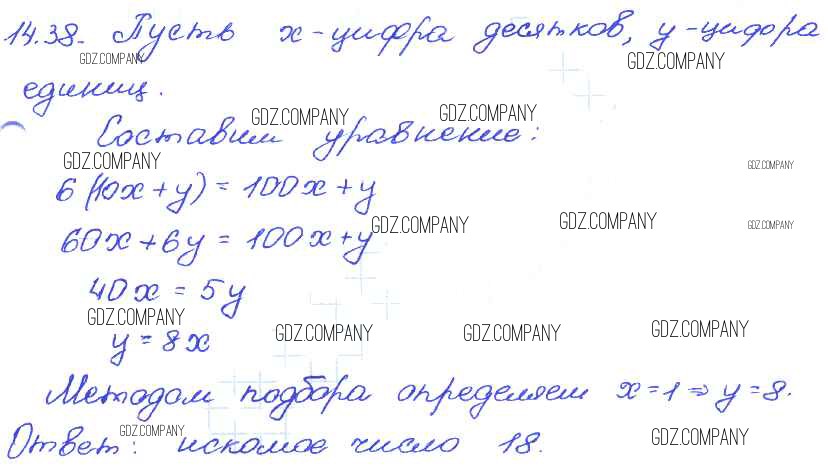 14.38. Пусть x - цифра десятков, y - цифра
GDZ.COMPANY GDZ.COMPANY
единиц.
GDZ.COMPANY GDZ.COMPANY
Составим уравнение:
GDZ.COMPANY GDZ.COMPANY
6(10x + y) = 100x + y
GDZ.COMPANY GDZ.COMPANY GDZ.COMPANY
60x + 6y = 100x + y
40x = 5y
GDZ.COMPANY GDZ.COMPANY GDZ.COMPANY GDZ.COMPANY
y = 8x
Методом подбора определяем x = 1 ⇒ y = 8.
GDZ.COMPANY GDZ.COMPANY
Ответ: искомое число 18.